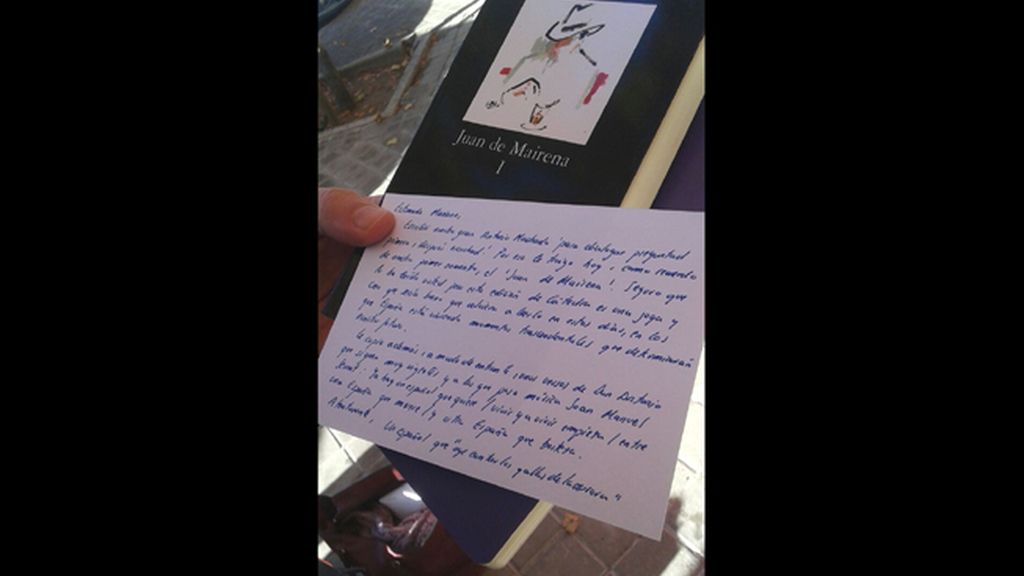 Juan de Mairena
I
Estimado Mariano,
Escribió nuestro gran Antonio Machado 'para dialogar preguntad
primero; después escuchad'. Por eso le traigo hoy, como recuerdo
de nuestro primer encuentro, el 'Juan de Mairena'. Seguro que
lo ha leído usted pero esta edición de Cátedra es una joya y
creo que está bien que volvamos a leerlo en estos días, en los
que España está viviendo momentos trascendentales que determinarán
nuestro futuro.
Le copio además, a modo de entrante, unos versos de Don Antonio
que siguen muy vigentes y a los que puso música Joan Manuel
Serrat: Ya hay un español que quiere / vivir y a vivir empieza / entre
una España que muere / y otra España que bosteza.
Atentamente, Un español que "oye cantar los gallos de la aurora"